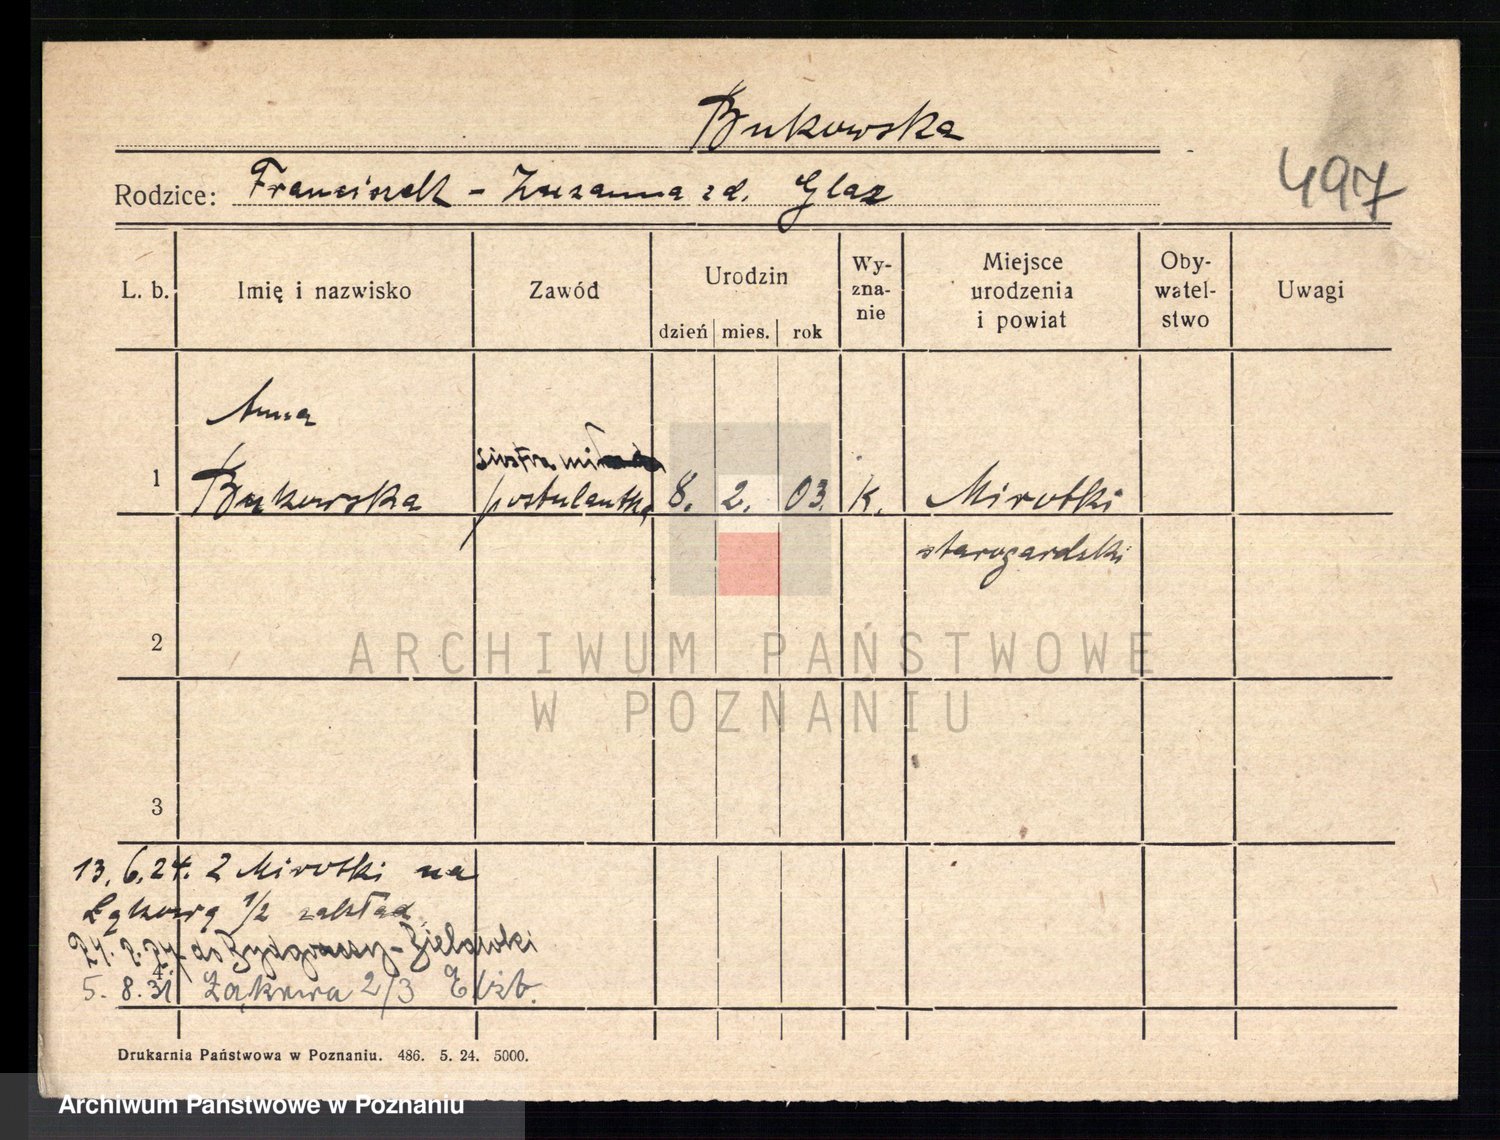 Bukowska
497
Rodzice: Franciszek - Zuzanna zd. Glaz
L. b.
Imię i nazwisko
Zawód
Urodzin
dzień mies. rok
Wy-
zna-
nie
Miejsce
urodzenia
i powiat
Oby-
watel-
stwo
Uwagi
Anna
siostra
1 Bukowska postulantka 8. 2. 03. K. Mirotki
starogardzki
2
ARCHIWUM PAŃSTWOWE
W POZNANIU
3
13. 6. 24. z Mirotki na
Łąkową 1/2 zakład
do Bydgoszczy - Bielawki
4
5. 8. 31 Łąkowa 2/3 Elżb.
Drukarnia Państwowa w Poznaniu. 486. 5. 24. 5000.
Archiwum Państwowe w Poznaniu